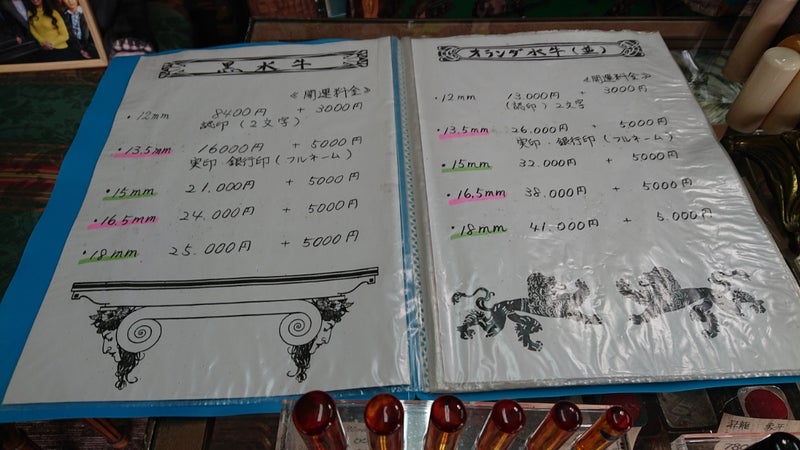 黒水牛
《開運料金》
・12mm 8400円 + 3000円
認印(2文字)
・13.5mm 16000円 + 5000円
実印・銀行印(フルネーム)
・15mm 21.000円 + 5000円
・16.5mm 24.000円 + 5000円
・18mm 25.000円 + 5000円
オランダ水牛(並)
《開運料金》
・12mm 13.000円 + 3000円
(認印)2文字
・13.5mm 26.000円 + 5000円
実印・銀行印(フルネーム)
・15mm 32.000円 + 5000円
・16.5mm 38.000円 + 5000円
・18mm 41.000円 + 5.000円